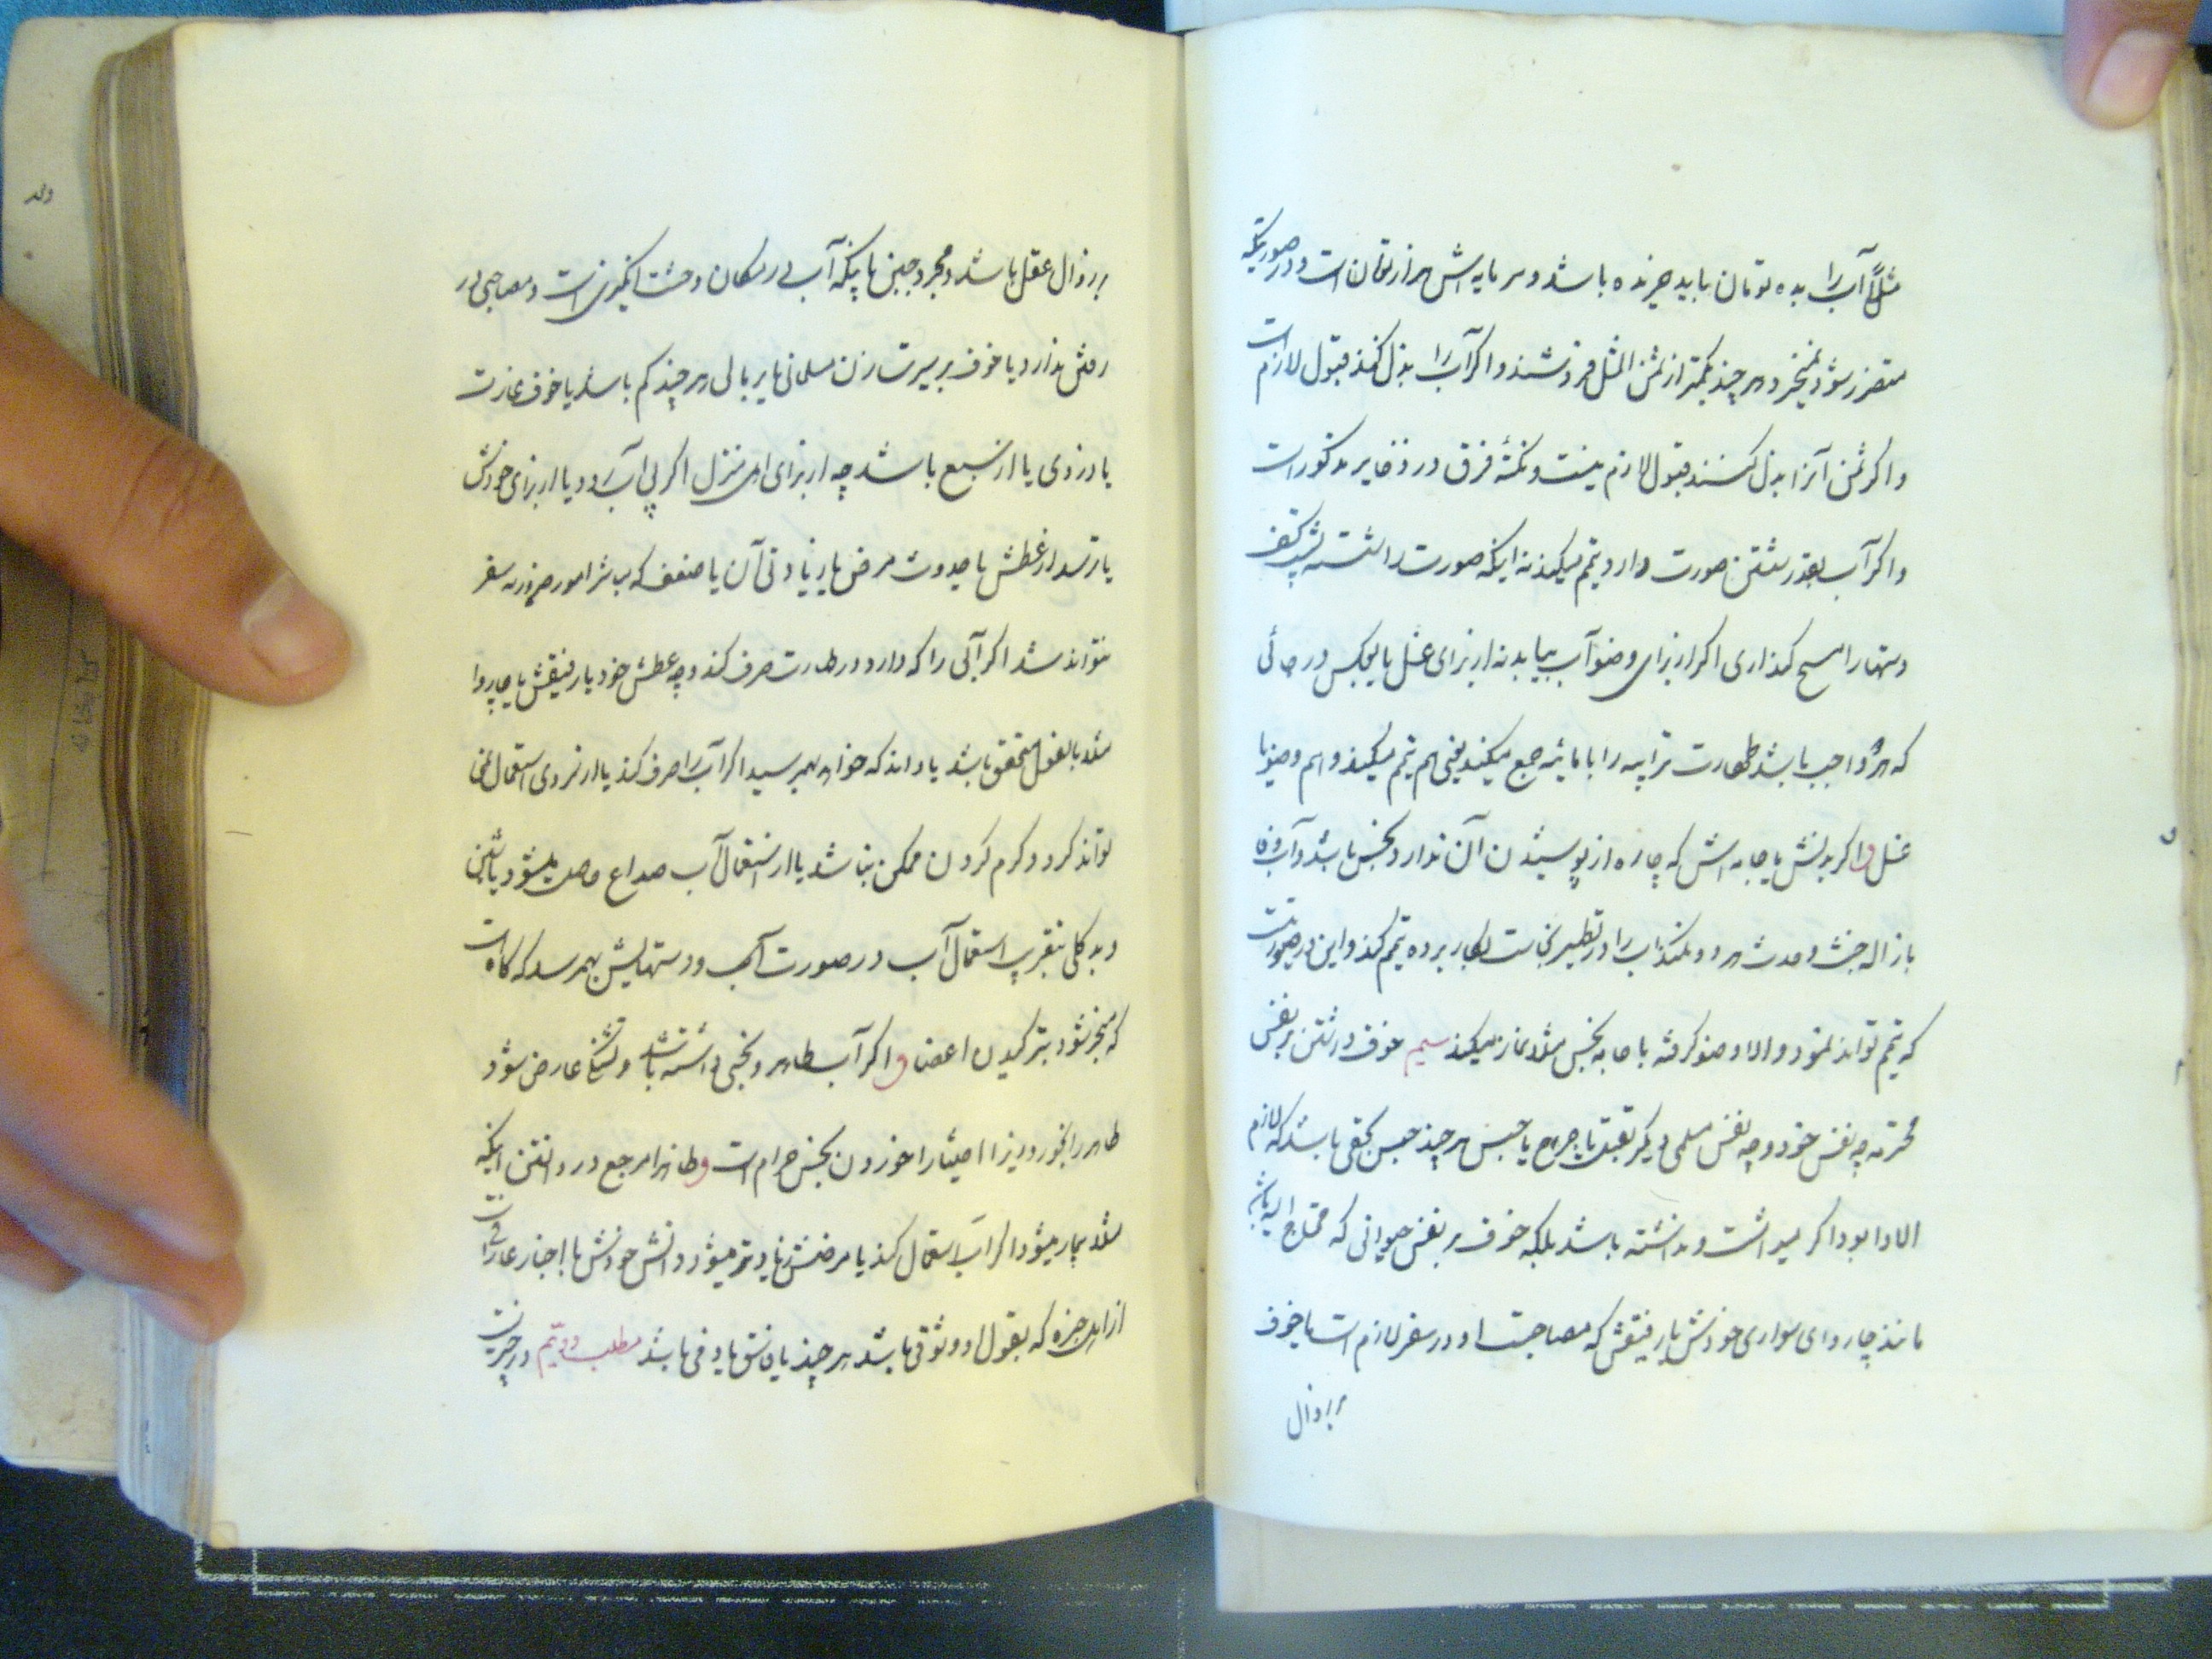 مثلاً آب را بده تومان باید خریده باشد و سرمایه اش هزار تومان است و در صورتیکه
متضرر شود نمیخرد هر چند بکمتر از ثمن المثل فروشند و اگر آب را بذل کنند قبول لازم است
و اگر ثمن آنرا بذل کنند قبول لازم نیست و نکتهٔ فرق در ذخایر مذکور است
و اگر آب بقدر شستن صورت دارد تیمم میکند نه اینکه صورت را شسته پشت کف
دستها را مسح کند آری اگر از برای وضو آب بیابد نه از برای غسل یا بعکس در جائی
که هر دو واجب باشد طهارت ترابیه را با مائیه جمع میکند یعنی هم تیمم میکند و هم وضو یا
غسل و اگر بدنش یا جامه اش که چاره از پوشیدن آن ندارد نجس باشد و آب وفا
بازاله خبث و حدث هر دو نکند آب را در تطهیر نجاست بکار برده تیمم کند و این در صورتیست
که تیمم تواند نمود و الا وضو گرفته با جامه نجس مثلا نماز میکند سیم خوف در شستن بر نفس
محترمه چه نفس خود و چه نفس مسلمی دیگر بقتل یا جراح یا حبس هر چند حبس بحقی باشد که لازم
الادا بود اگر میداشت و نداشته باشد بلکه خوف بر نفس حیوانی که محتاج الیه باشد
مانند چاروای سواری خودش یا رفیقش که مصاحبت او در سفر لازم است یا خوف
بر زوال
بر زوال عقل باشد و مجرد جبن باینکه آب در مکان وحشت انگیزی است و مصاحبی در
رفتن ندارد یا خوف بر سیرت زن مسلمانی یا بر مالی هر چند کم باشد یا خوف غارت
یا دزدی یا از سبع باشد چه از برای اهل منزل اگر پی آب رود یا از برای خودش
یا ترسد از عطش یا حدوث مرض یا زیادتی آن یا ضعف که مباشر امور ضروریه سفر
نتواند شد اگر آبی را که دارد در طهارت صرف کند و چه عطش خود یا رفیقش یا چاروا
مثلا بالفعل متحقق باشد یا داند که خواهد بهم رسید اگر آب را صرف کند یا از سردی استعمال نمی
تواند کرد و گرم کردن ممکن نباشد یا از استعمال آب صداع حاصل میشود یا شین
و بدگلی بتقریب استعمال آب در صورت یا و دستهایش بهم رسد که گاه است
که منجر شود بترکیدن اعضا و اگر آب طاهر و نجسی داشته باشد و تشنگی عارض شود
طاهر را بخورد زیرا اختیارا خوردن نجس حرام است و ظاهرا مرجع در دانستن اینکه
مثلا بیمار میشود اگر آب استعمال کند یا مرضش زیادتر میشود دانش خودش یا اخبار عارفی است
از اهل خبره که بقول او وثوقی باشد هر چند یا فاسق یا ذمی باشد مطلب دویم در چیزیست